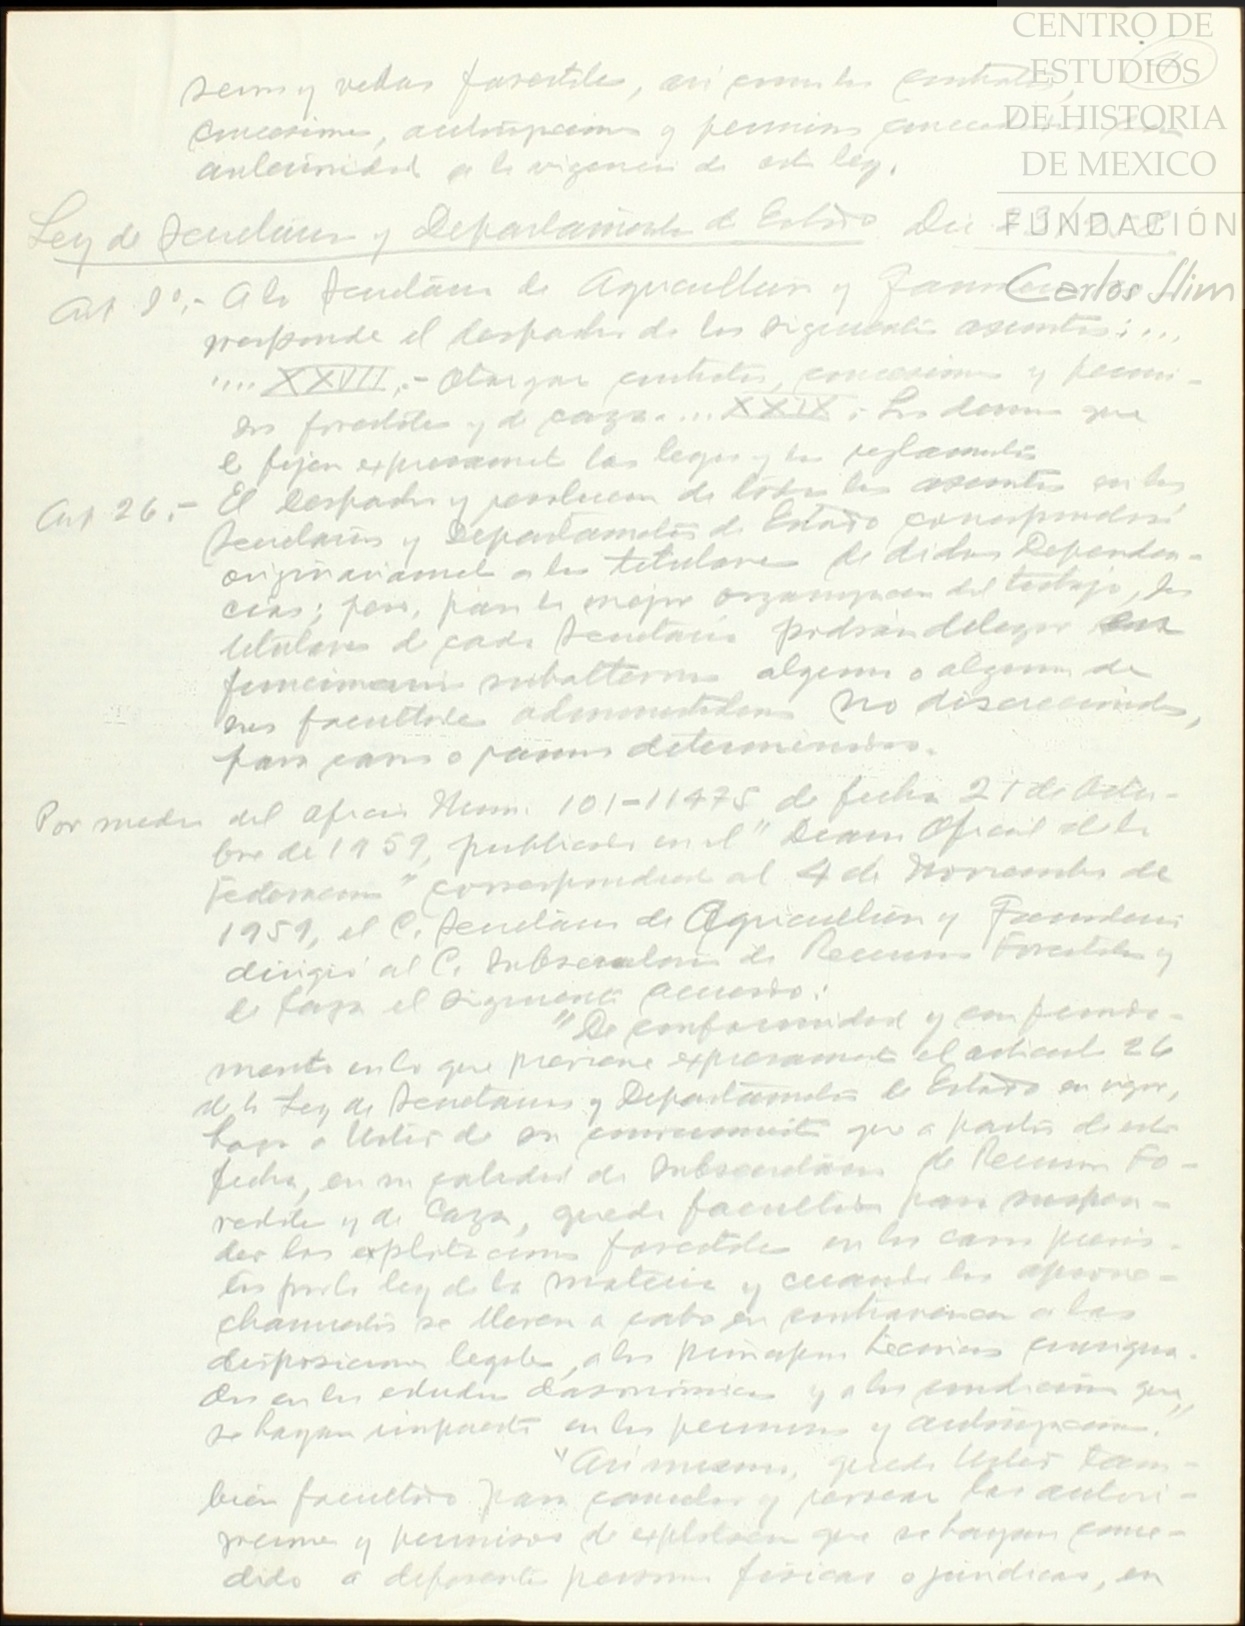 CENTRO DE
ESTUDIOS
DE HISTORIA
DE MEXICO
FUNDACIÓN
Carlos Slim
y vedas forestales, así como los contratos,
concesiones, autorizaciones y permisos concedidos con
anterioridad a la vigencia de esta ley.
Ley de Secretarías y Departamentos de Estado Dic
Art 9º.- A la Secretaría de Agricultura y Ganadería
rresponde el despacho de los siguientes asuntos:...
.... XXVII.- Otorgar contratos, concesiones y permi-
sos forestales y de caza.... XXIX.- Los demas que
le fijen expresamente las leyes y los reglamentos
Art 26.- El despacho y resolucion de todos los asuntos en las
Secretarías y Departamentos de Estado corresponderá
originariamente a los titulares de dichas Dependen-
cias; pero, para la mejor organizacion del trabajo, los
titulares de cada Secretaría podrán delegar en
funcionarios subalternos alguna o algunas de
sus facultades administrativas no discrecionales,
para casos o ramos determinados.
Por medio del oficio Num. 101-11475 de fecha 21 de Octu-
bre de 1959, publicado en el "Diario Oficial de la
Federación" correspondiente al 4 de Noviembre de
1959, el C. Secretario de Agricultura y Ganadería
dirigió al C. Subsecretario de Recursos Forestales y
de Caza el siguiente acuerdo:
"De conformidad y con funda-
mento en lo que previene expresamente el articulo 26
de la Ley de Secretarías y Departamentos de Estado en vigor,
hago a Usted de su conocimiento que a partir de esta
fecha, en su calidad de Subsecretario de Recursos Fo-
restales y de Caza, queda facultado para suspen-
der las explotaciones forestales en los casos previs-
tos por la ley de la materia y cuando los aprove-
chamientos se lleven a cabo en contravencion a las
disposiciones legales, a los principios técnicos consigna-
dos en los estudios dasonómicos y a las condiciones que
se hayan impuesto en los permisos y autorizaciones."
"Asi mismo, queda Usted tam-
bien facultado para cancelar y revocar las autori-
zaciones y permisos de explotacion que se hayan conce-
dido a diferentes personas físicas o jurídicas, en